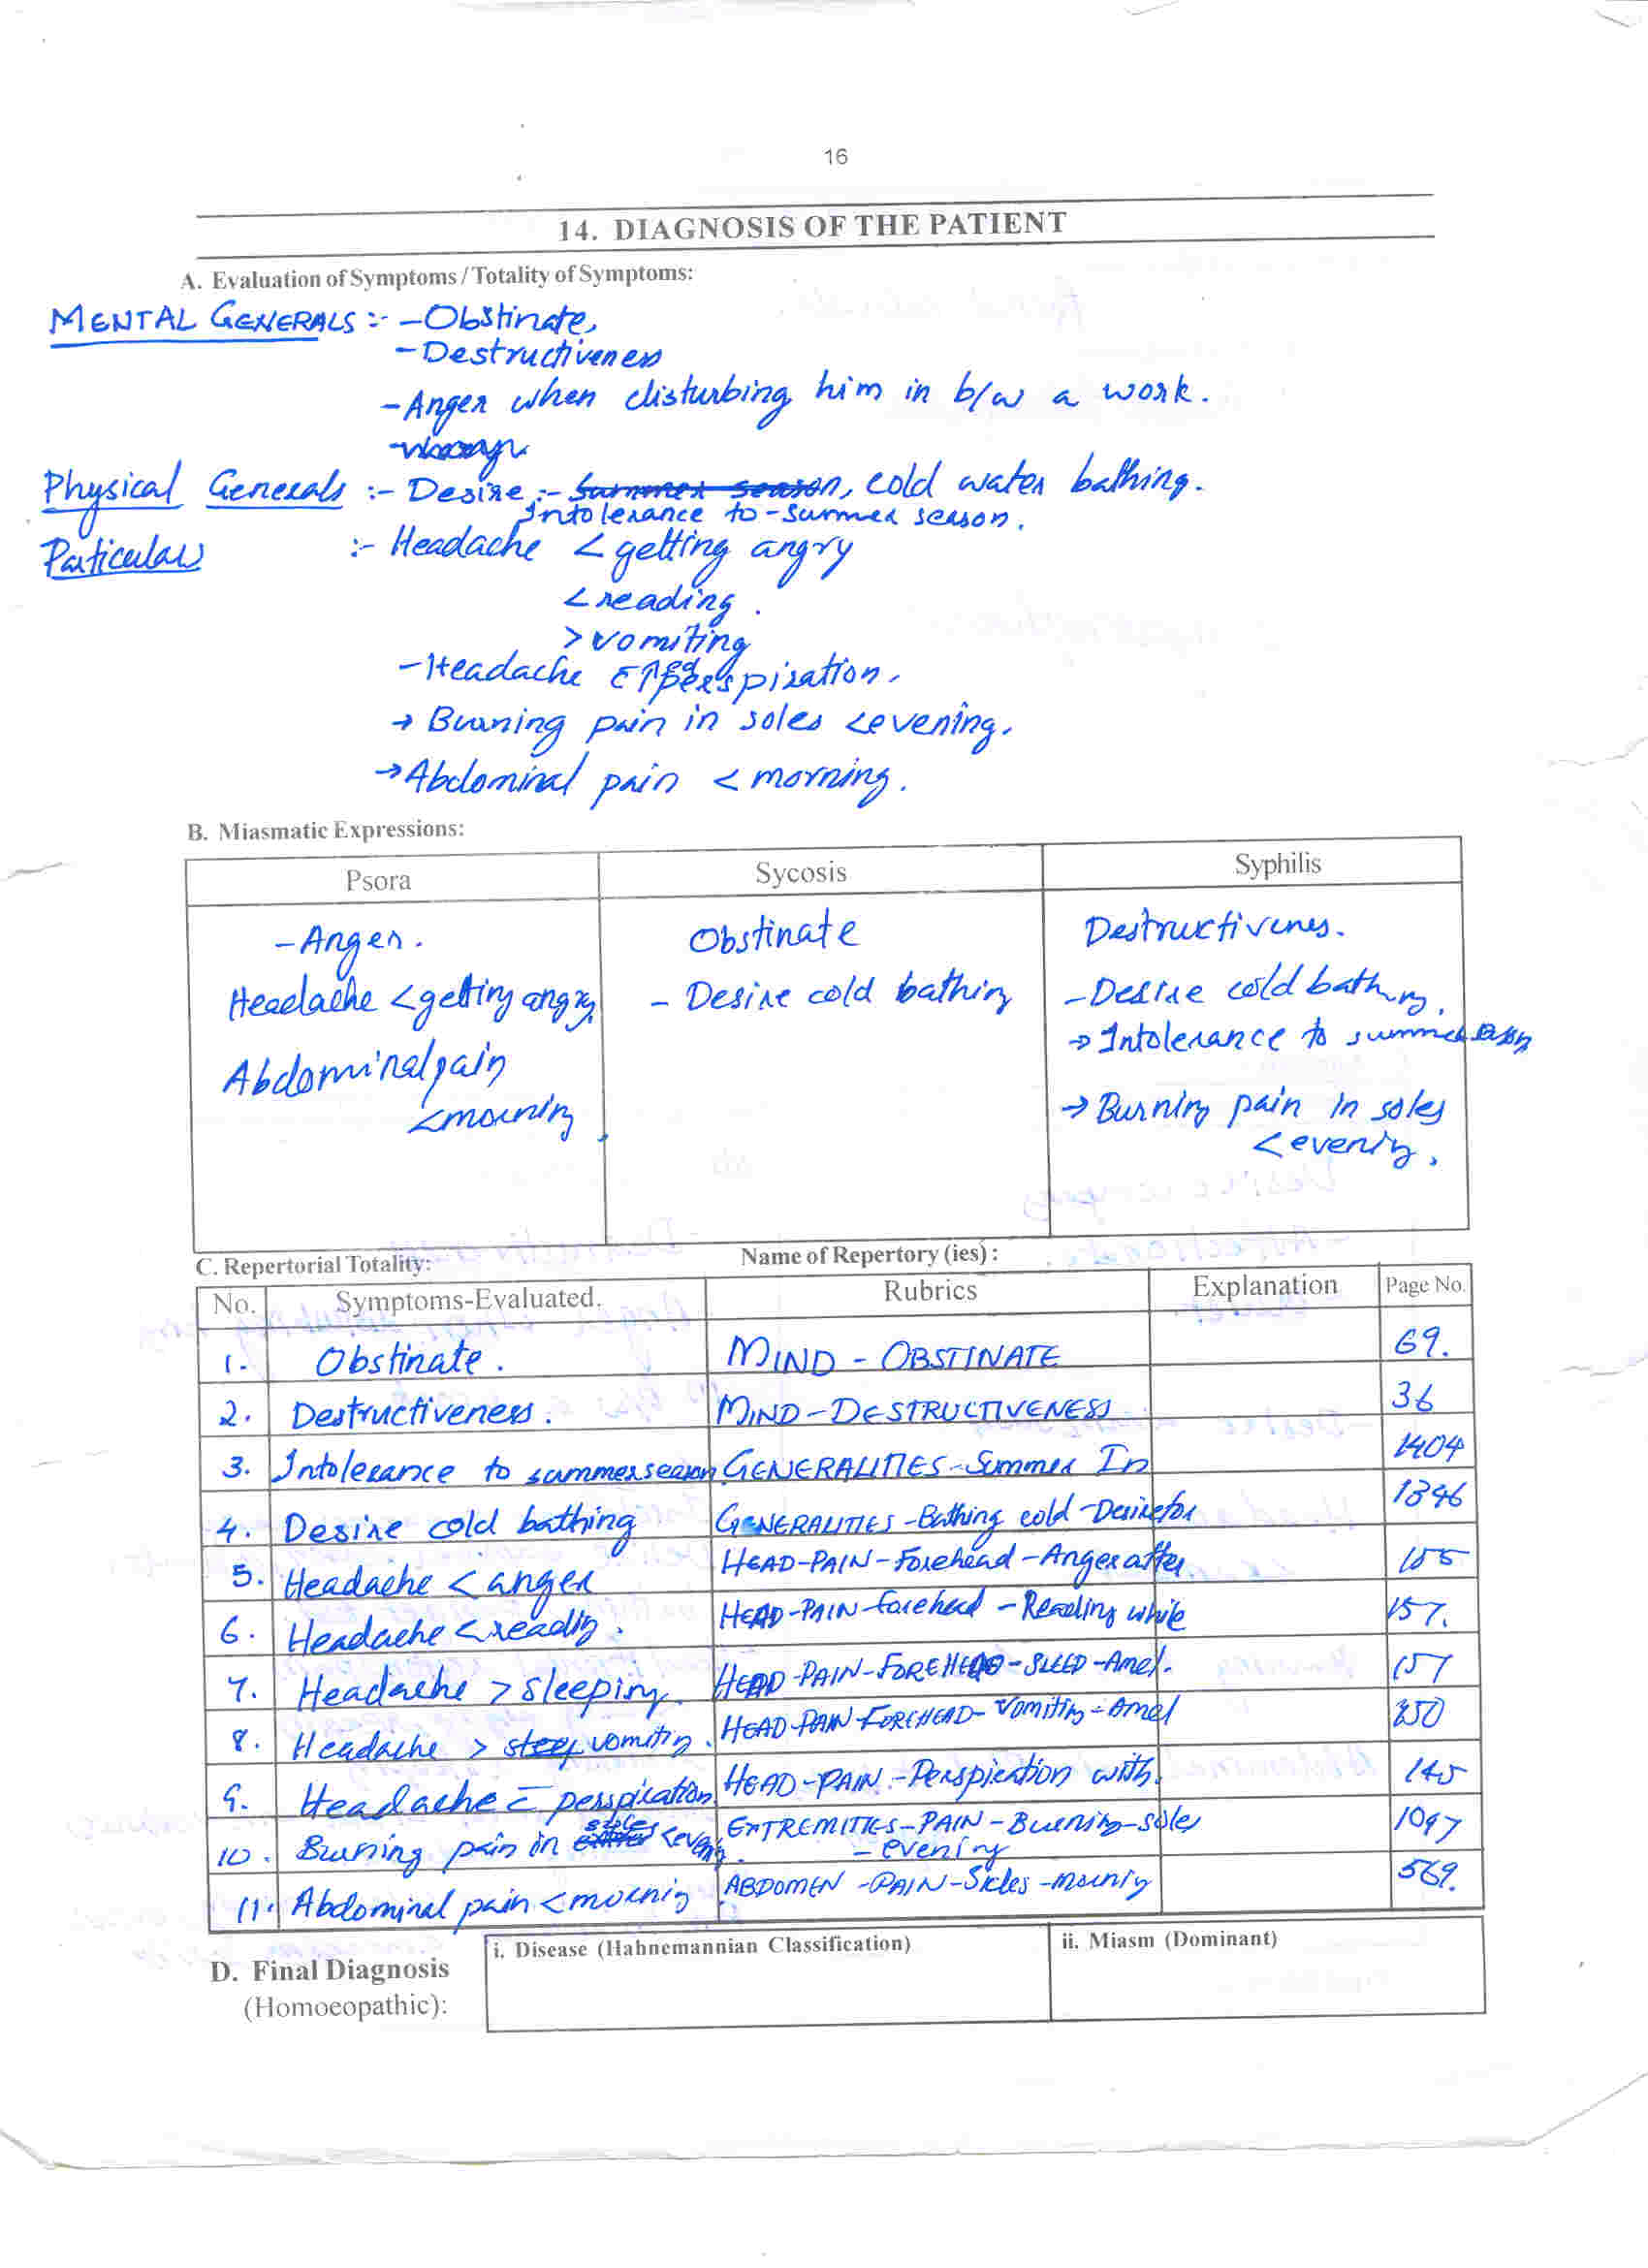 16
14. DIAGNOSIS OF THE PATIENT
A. Evaluation of Symptoms / Totality of Symptoms:
MENTAL GENERALS :- - Obstinate,
- Destructiveness
- Anger when disturbing him in b/w a work.
Physical Generals :- Desire :- Summer season, cold water bathing.
Intolerance to - summer season.
Particulars :- Headache < getting angry
< reading.
> vomiting
- Headache c̄ perspiration.
→ Burning pain in soles < evening.
→ Abdominal pain < morning.
B. Miasmatic Expressions:
Psora Sycosis Syphilis
- Anger. Obstinate Destructivenes.
Headache < getting angry - Desire cold bathing - Desire cold bathing.
→ Intolerance to summer season
Abdominal pain
< morning → Burning pain in soles
< evening.
C. Repertorial Totality: Name of Repertory (ies) :
No. Symptoms-Evaluated. Rubrics Explanation Page No.
1. Obstinate. MIND - OBSTINATE 69.
2. Destructiveness. MIND - DESTRUCTIVENESS 36
3. Intolerance to summer season. GENERALITIES - Summer In 1404
4. Desire cold bathing GENERALITIES - Bathing cold - Desire for 1346
5. Headache < anger HEAD - PAIN - Forehead - Anger after 155
6. Headache < readig. HEAD - PAIN - forehead - Reading while 157.
7. Headache > sleeping. HEAD - PAIN - FOREHEAD - SLEEP - Amel. 157
8. Headache > sleep vomiting. HEAD - PAIN - FOREHEAD - Vomiting - Amel
9. Headache c̄ perspiration. HEAD - PAIN - Perspiration with. 145
10. Burning pain in soles < eveng. EXTREMITIES - PAIN - Burning - soles 1097
- evening
11. Abdominal pain < mornig ABDOMEN - PAIN - Sides - morning 569.
D. Final Diagnosis
(Homoeopathic):
i. Disease (Hahnemannian Classification) ii. Miasm (Dominant)